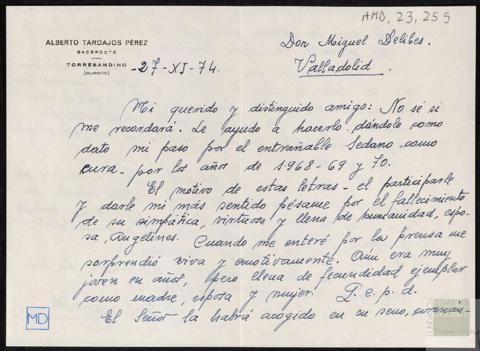 AMD, 23, 255
ALBERTO TARDAJOS PÉREZ
SACERDOTE
TORRESANDINO
(BURGOS)
-27-XI-74.
Don Miguel Delibes.
Valladolid.
Mi querido y distinguido amigo: No sé si
me recordará. Le ayudo a hacerlo, dándole como
dato mi paso por el entrañable Sedano como
cura - por los años de 1.968-69 y 70.
El motivo de estas letras - el participarle
y darle mi más sentido pésame por el fallecimiento
de su simpática, virtuosa y llena de humanidad, espo-
sa, Angelines. Cuando me enteré por la prensa me
sorprendió viva y emotivamente. Aún era muy
joven en años, pero llena de fecundidad ejemplar
como madre, esposa y mujer. D. e. p. d.
El Señor la habrá acogido en su seno,
MD